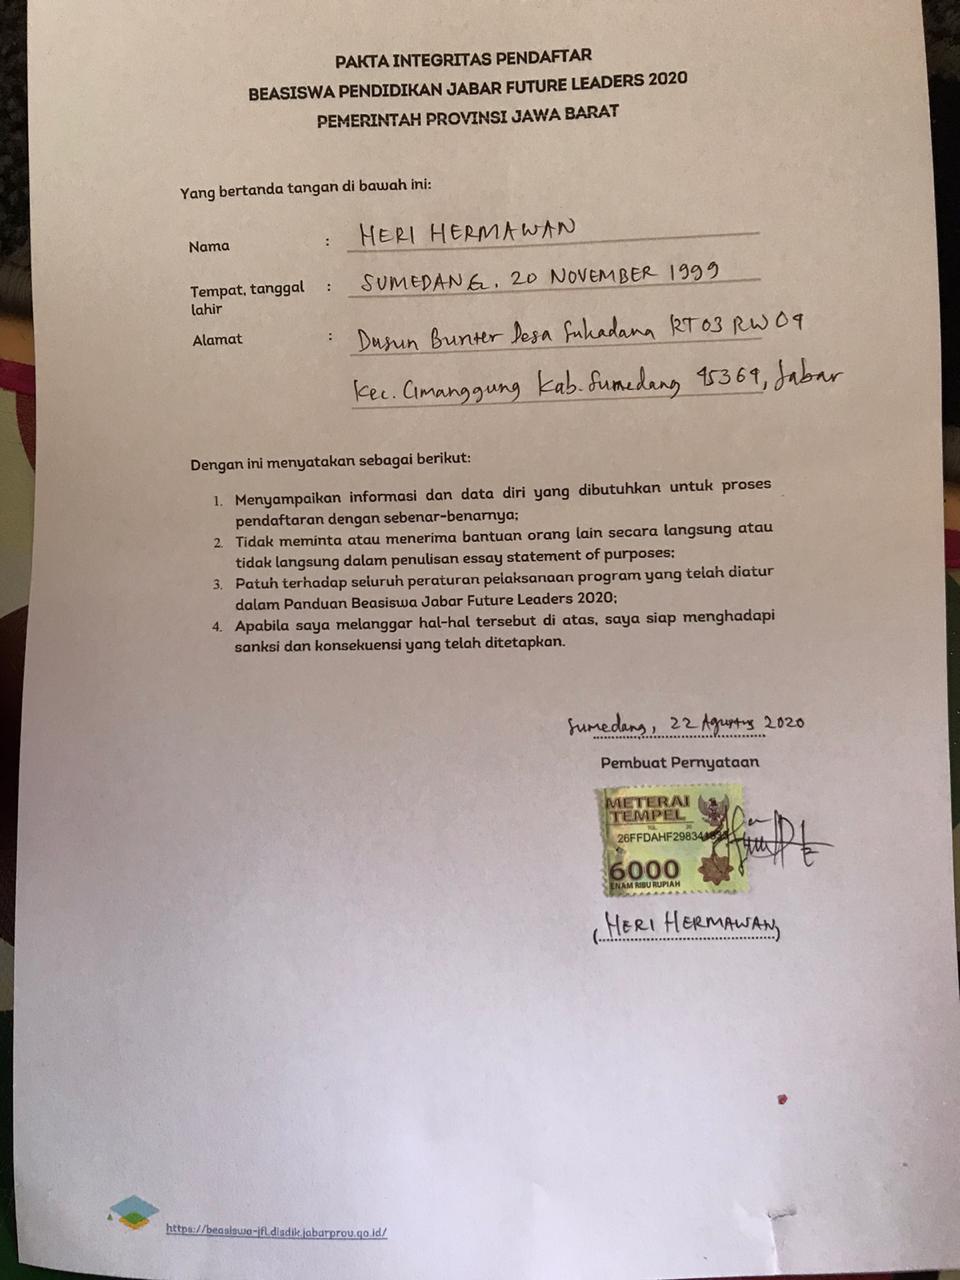 PAKTA INTEGRITAS PENDAFTAR
BEASISWA PENDIDIKAN JABAR FUTURE LEADERS 2020
PEMERINTAH PROVINSI JAWA BARAT
Yang bertanda tangan di bawah ini:
Nama : HERI HERMAWAN
Tempat, tanggal lahir : SUMEDANG, 20 NOVEMBER 1999
Alamat : Dusun Bunter Desa Sukadana RT 03 RW 09
Kec. Cimanggung Kab. Sumedang 45364, Jabar
Dengan ini menyatakan sebagai berikut:
1. Menyampaikan informasi dan data diri yang dibutuhkan untuk proses
pendaftaran dengan sebenar-benarnya;
2. Tidak meminta atau menerima bantuan orang lain secara langsung atau
tidak langsung dalam penulisan essay statement of purposes;
3. Patuh terhadap seluruh peraturan pelaksanaan program yang telah diatur
dalam Panduan Beasiswa Jabar Future Leaders 2020;
4. Apabila saya melanggar hal-hal tersebut di atas, saya siap menghadapi
sanksi dan konsekuensi yang telah ditetapkan.
Sumedang, 22 Agustus 2020
Pembuat Pernyataan
METERAI
TEMPEL
TGL. 20
6000
ENAM RIBU RUPIAH
(HERI HERMAWAN)
https://beasiswa-jfl.disdik.jabarprov.go.id/